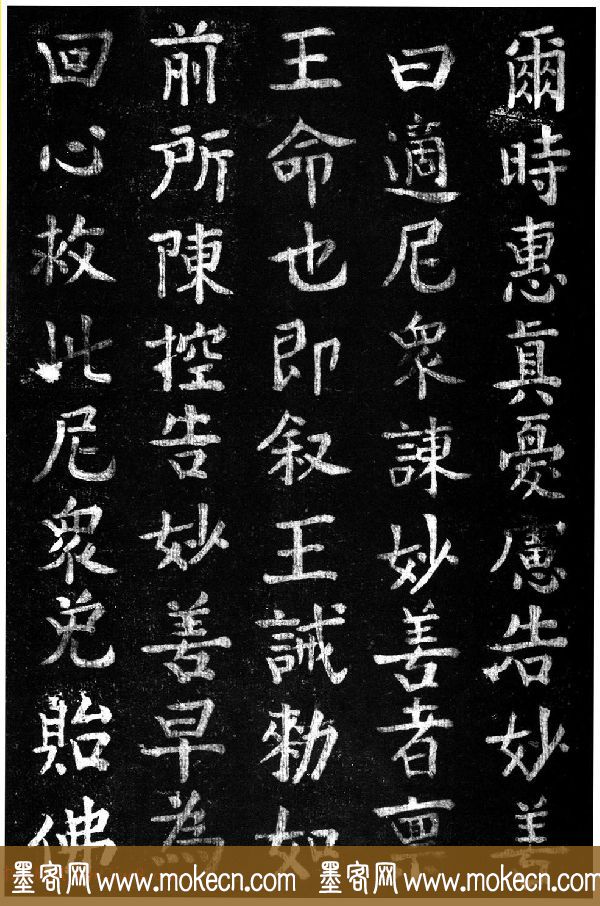 爾時惠真憂慮告妙善
曰適尼衆諫妙善者稟
王命也即叙王誡勑如
前所陳控告妙善早為
回心救此尼衆免貽佛
墨客网 www.mokecn.com 墨客网 www.mokecn.com